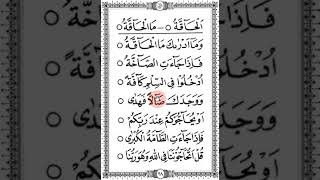 اَلْحَآقَّةُ ○ مَا الْحَآقَّةُ ○
وَمَآ اَدْرٰىكَ مَا الْحَآقَّةُ ○
فَاِذَا جَآءَتِ الصَّآخَّةُ ○
اُدْخُلُوْا فِي السِّلْمِ كَآفَّةً ○
وَوَجَدَكَ ضَآلًّا فَهَدٰى ○
اَوْ يُحَآجُّوْكُمْ عِنْدَ رَبِّكُمْ ○
فَاِذَا جَآءَتِ الطَّآمَّةُ الْكُبْرٰى ○
قُلْ اَتُحَآجُّوْنَنَا فِي اللّٰهِ وَهُوَ رَبُّنَا ○